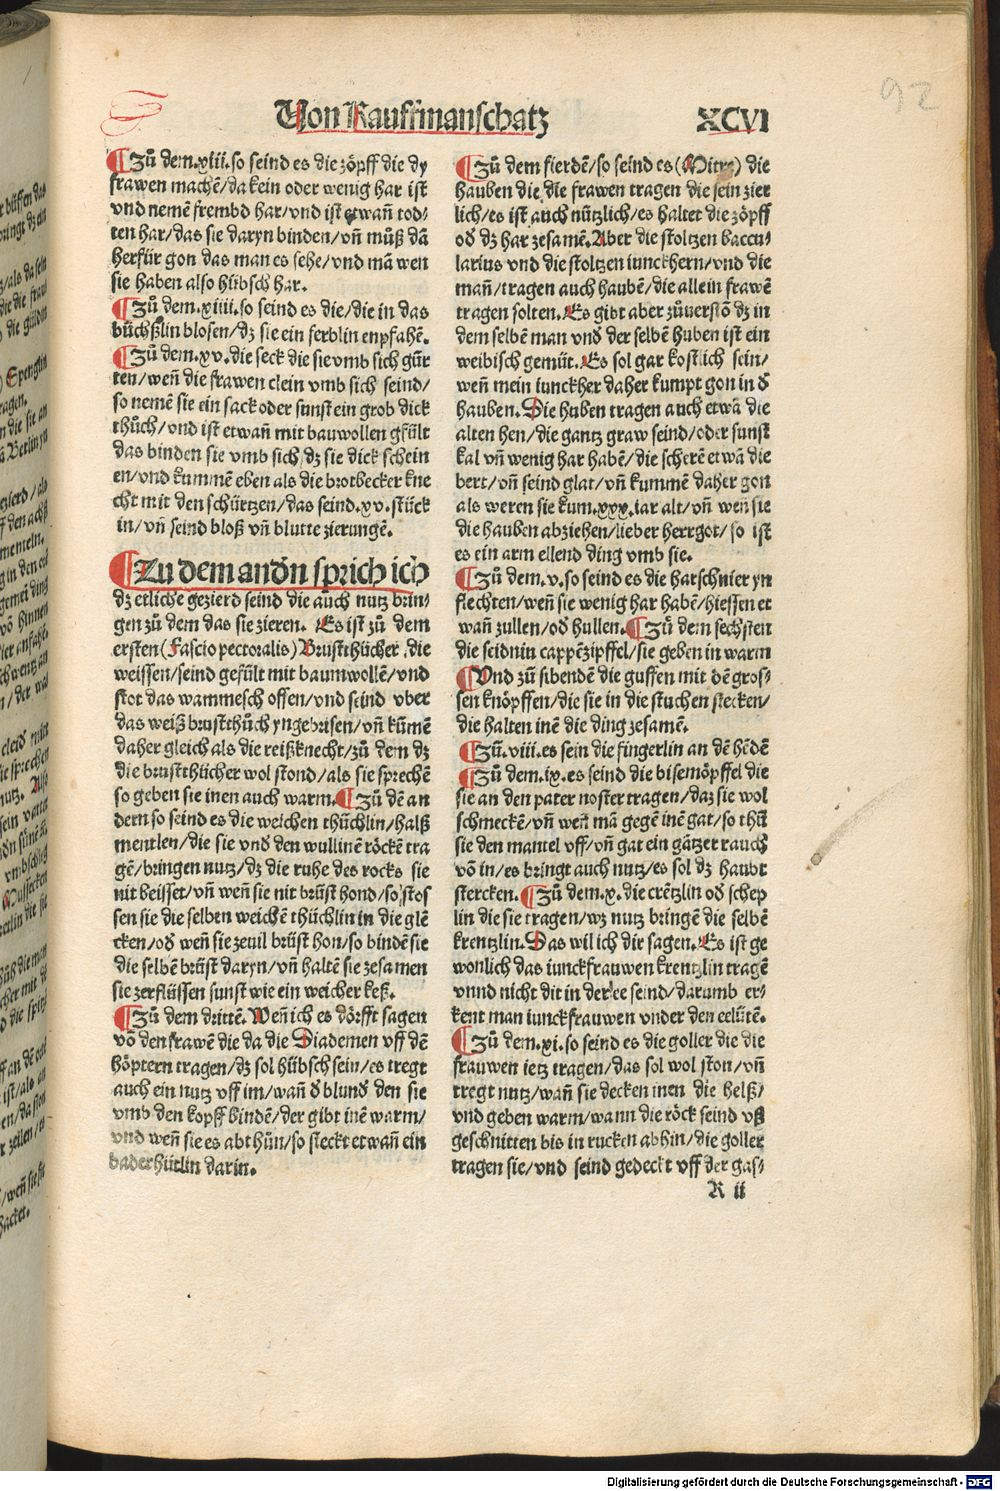 Von Kauffmanschatz
XCVI
92
¶Zů dem.xiii.so seind es die zöpff die dy
frawen machē/da kein oder wenig har ist
vnd nemē frembd har/vnd ist etwañ tod⸗
ten har/das sie daryn binden/vñ můß dā
herfür gon das man es sehe/vnd mā wen
sie haben also hübsch har.
¶Zů dem.xiiii.so seind es die/die in das
büchßlin blosen/dz sie ein ferblin enpfahē.
¶Zů dem.xv.die seck die sie vmb sich gür
ten/weñ die frawen clein vmb sich seind/
so nemē sie ein sack oder sunst ein grob dick
thůch/vnd ist etwañ mit bauwollen gfült
das binden sie vmb sich/dz sie dick schein
en/vnd kummē eben als die brotbecker kne
cht mit den schürtzen/das seind.xv.stück
in/vñ seind bloß vñ blutte zierungē.
¶Zu dem andn̄ sprich ich
dz etliche gezierd seind die auch nutz brin⸗
gen zů dem das sie zieren. Es ist zů dem
ersten(Fascio pectoralis)Brustthücher/die
weissen/seind gefült mit baumwollē/vnd
stot das wammesch offen/vnd seind vber
das weiß brustthůch yngebrisen/vñ kūmē
daher gleich als die reißknecht/zů dem dz
die brustthücher wol stond/als sie sprechē
so geben sie inen auch warm.¶Zů dē an
dern so seind es die weichen thüchlin/halß
mentlen/die sie vnd den wullinē röckē tra
gē/bringen nutz/dz die ruhe des rocks sie
nit beisset/vñ weñ sie nit brüst hond/so stos
sen sie die selben weichē thüchlin in die glē
cken/od wen̄ sie zeuil brüst hon/so bindē sie
die selbē brüst daryn/vñ haltē sie zesamen
sie zerflüssen sunst wie ein weicher keß.
¶Zů dem drittē. Weñ ich es dörfft sagen
vō den frawē die da die Diademen vff dē
höptern tragen/dz sol hübsch sein/es tregt
auch ein nutz vff im/wañ d blund den sie
vmb den kopff bindē/der gibt inē warm/
vnd weñ sie es abthůn/so steckt etwañ ein
baderhütlin darin.
¶Zů dem fierdē/so seind es(Mitre)die
hauben die die frawen tragen die sein zier
lich/es ist auch nützlich/es haltet die zöpff
od dz har zesamē.Aber die stoltzen baccu⸗
larius vnd die stoltzen iunckhern/vnd die
mañ/tragen auch haubē/die allein frawē
tragen solten. Es gibt aber zůuerstō dz in
dem selben man vnd der selbē huben ist ein
weibisch gemüt.Es sol gar kostlich sein/
weñ mein iunckher daher kumpt gon in d
hauben.Die huben tragen auch etwā die
alten hen/die gantz graw seind/oder sunst
kal vñ wenig har habē/die scherē etwā die
bert/vñ seind glat/vñ kummē daher gon
als weren sie kum.xxx.iar alt/vñ weñ sie
die hauben abziehen/lieber herrgot/so ist
es ein arm ellend ding vmb sie.
¶Zů dem.v.so seind es die harschnier yn
flechten/weñ sie wenig har habē/hiessen et
wañ zullen/od hullen.¶Zů dem sechsten
die seidnin cappēzipffel/sie geben in warm
¶Vnd zů sibendē die guffen mit dē gros⸗
sen knöpffen/die sie in die stuchen stecken/
die halten inē die ding zesamē.
¶Zů.viii.es sein die fingerlin an dē hēdē
¶Zů dem.ix.es seind die bisemöpffel die
sie an den pater noster tragen/daz sie wol
schmeckē/vñ weñ mā gegē inē gat/so thů
sie den mantel vff/vñ gat ein gātzer rauch
vō in/es bringt auch nutz/es sol dz haubt
stercken.¶Zů dem.x.die crētzlin od schep
lin die sie tragen/wz nutz bringē die selbē
krentzlin.Das wil ich dir sagen.Es ist ge
wonlich das iunckfrauwen krentzlin tragē
vnnd nicht dit in der ee seind/darumb er⸗
kent man iunckfrauwen vnder den eelütē.
¶Zů dem.xi.so seind es die goller die die
frauwen ietz tragen/das sol wol ston/vñ
tregt nutz/wañ sie decken inen die helß/
vnd geben warm/wann die röck seind vß
geschnitten bis in rucken abhin/die goller
tragen sie/vnd seind gedeckt vff der gas⸗
R ii
Digitalisierung gefördert durch die Deutsche Forschungsgemeinschaft - DFG